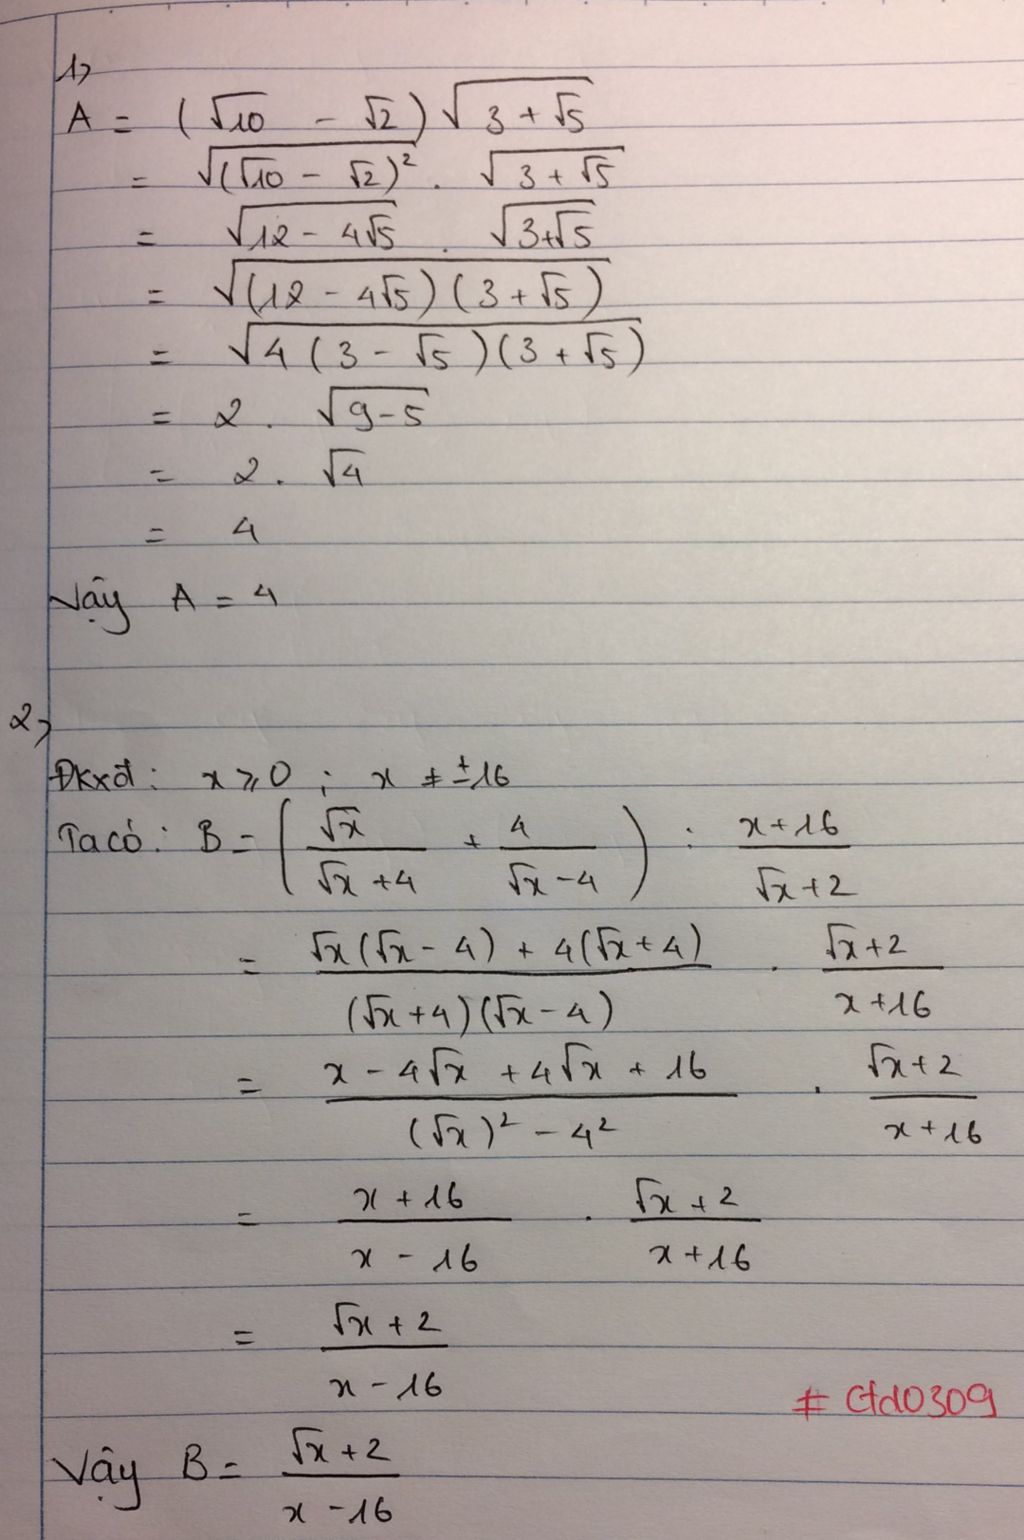 1)
A = (√10 - √2) √(3 + √5)
= √((√10 - √2)²) . √(3 + √5)
= √(12 - 4√5) . √(3+√5)
= √((12 - 4√5)(3 + √5))
= √(4(3 - √5)(3 + √5))
= 2 . √(9-5)
= 2 . √4
= 4
Vậy A = 4
2)
Đkxđ: x ⩾ 0 ; x ≠ ±16
Ta có: B = (√x/(√x + 4) + 4/(√x - 4)) : (x + 16)/(√x + 2)
= (√x(√x - 4) + 4(√x + 4))/((√x + 4)(√x - 4)) . (√x + 2)/(x + 16)
= (x - 4√x + 4√x + 16)/((√x)² - 4²) . (√x + 2)/(x + 16)
= (x + 16)/(x - 16) . (√x + 2)/(x + 16)
= (√x + 2)/(x - 16)
# Ctd0309
Vậy B = (√x + 2)/(x - 16)